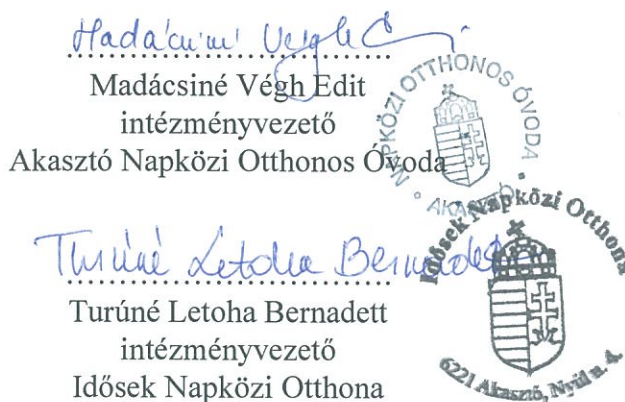 Madácsiné Végh E
Madácsiné Végh Edit
intézményvezető
Akasztó Napközi Otthonos Óvoda
NAPKÖZI OTTHONOS ÓVODA
AKASZTÓ
Turúné Letoha Bernadett
Turúné Letoha Bernadett
intézményvezető
Idősek Napközi Otthona
Idősek Napközi Otthona
6221 Akasztó, Nyúl u. 4.